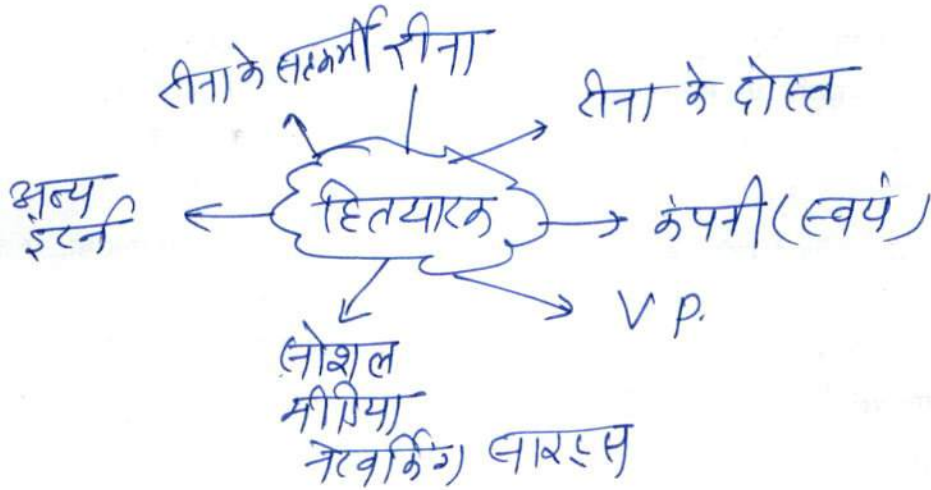 रीना के सहकर्मी
रीना
रीना के दोस्त
अन्य
इंटर्न
हितधारक
कंपनी (स्वयं)
V P.
सोशल
मीडिया
नेटवर्किंग साइट्स